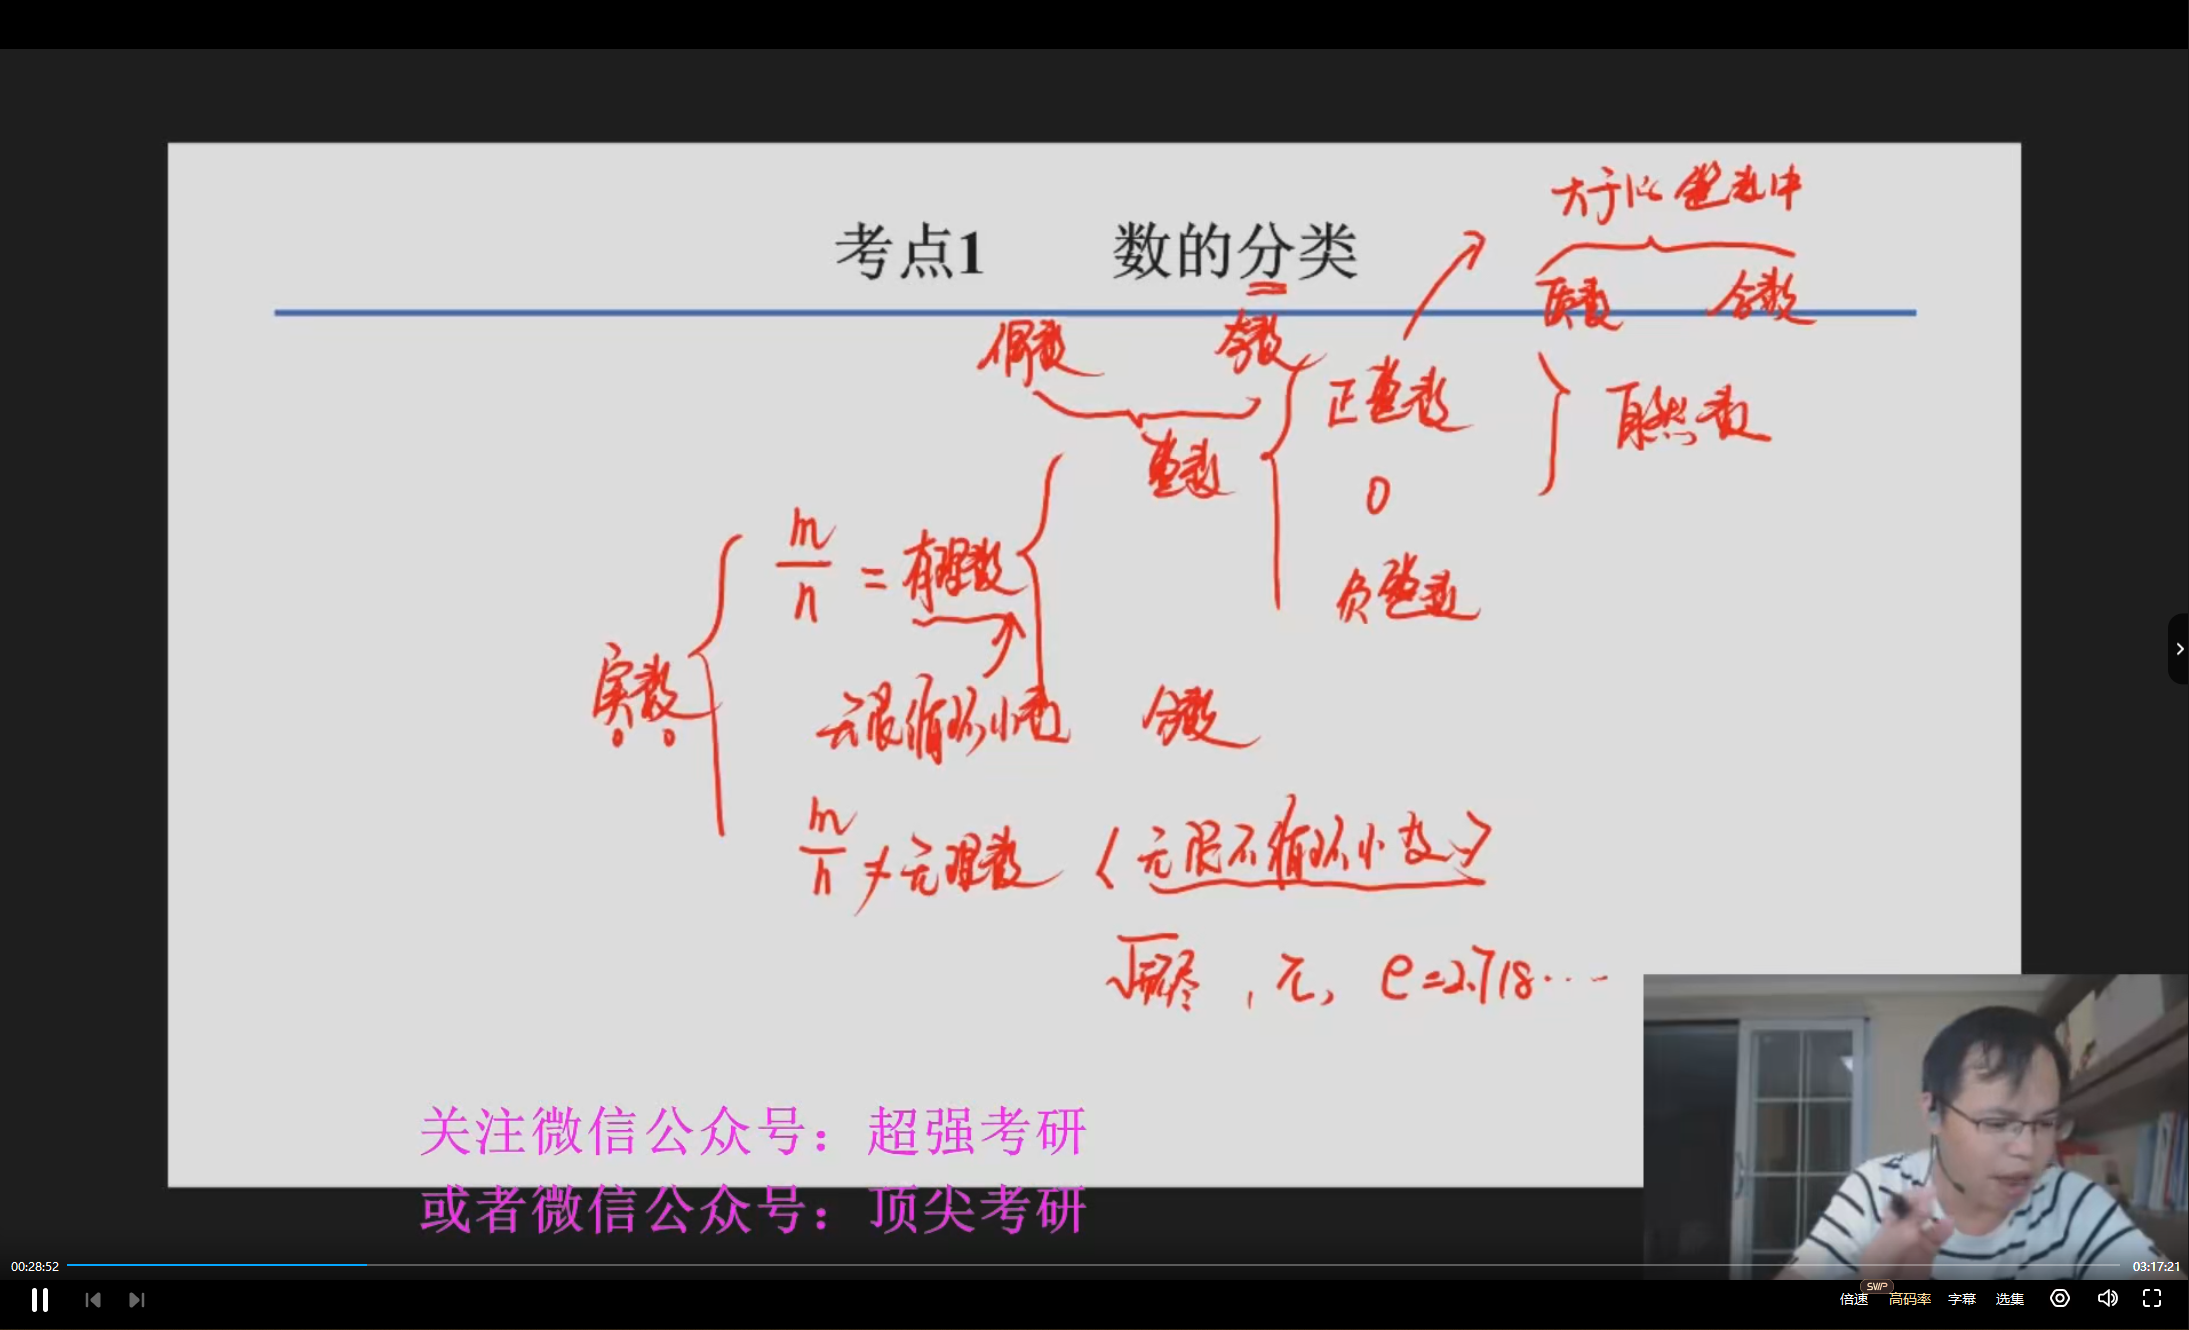 考点1 数的分类
大于1的整数中
质数 合数
偶数 奇数
正整数
自然数
整数
0
m/n = 有理数
负整数
实数
无限循环小数 分数
m/n ≠ 无理数 (无限不循环小数)
√开不尽, π, e=2.718……
关注微信公众号：超强考研
或者微信公众号：顶尖考研
00:28:52 03:17:21
SVIP
倍速 高码率 字幕 选集